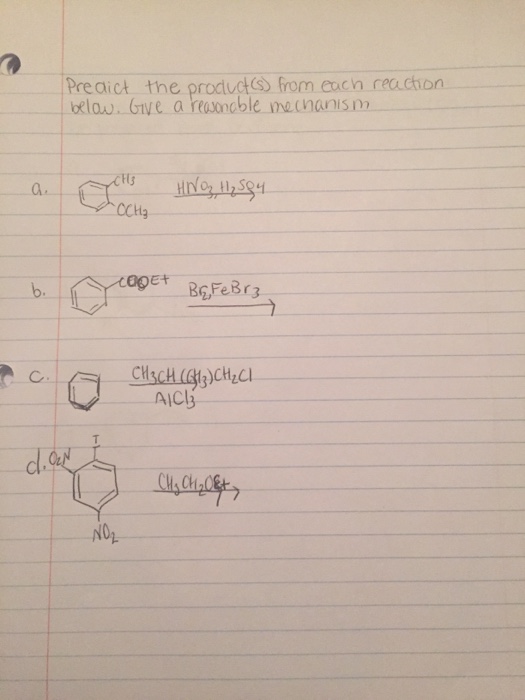 Predict the product(s) from each reaction
below. Give a reasonable mechanism
a.
CH3
OCH3
HNO3, H2SO4
b.
COOEt
Br2FeBr3
c.
CH3CH(CH3)CH2Cl
AlCl3
d.
O2N
I
NO2
CH3CH2OEt